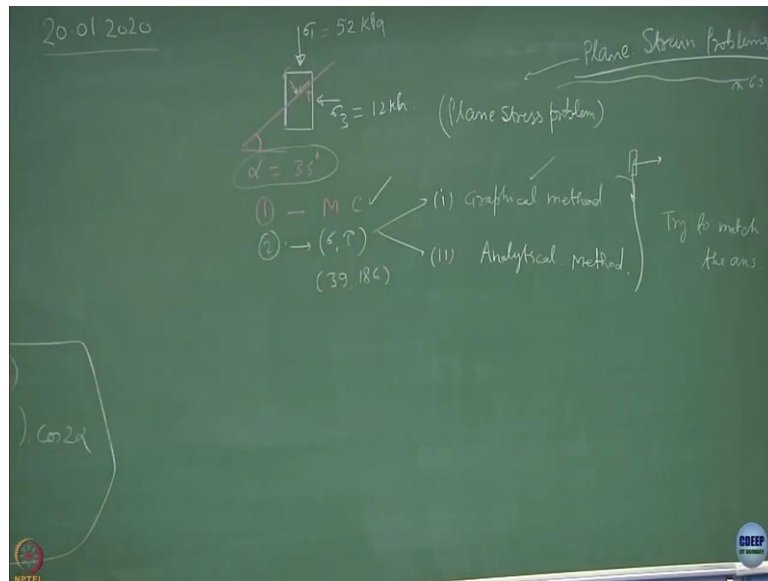 20.01.2020
σ1 = 52 kPa
Plane Strain Problems
σ3 = 12 kPa.
(Plane stress problem)
α = 35°
① — M.C ✓
② → (σ, τ)
(39, 18.6)
(i) Graphical method ✓
(ii) Analytical method.
Try to match
the ans.
)
). cos2α
NPTEL
CDEEP
IIT BOMBAY